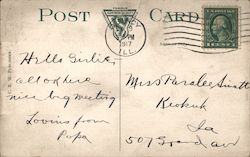 POST CARD
1917
ILL.
Hello Girlies
all O.K. here
nice big meeting
Lovins from
Papa
Miss Paralee
Keokuk
Ia
507 Grand av